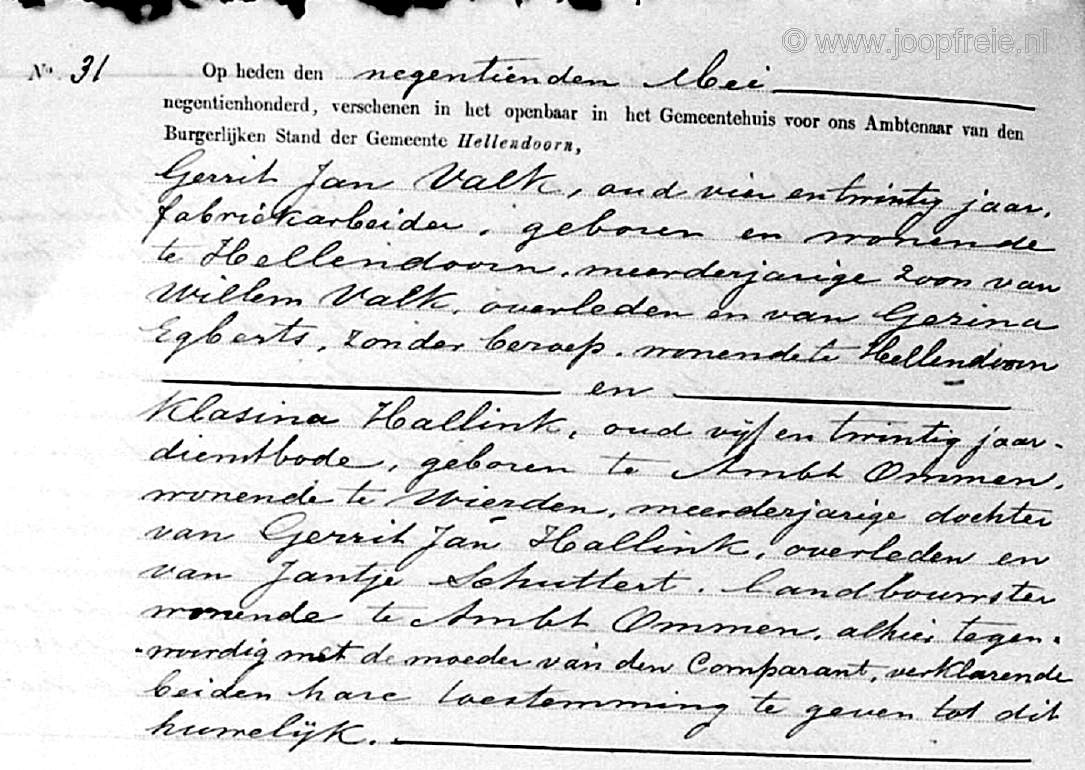 © www.joopfreie.nl
No. 31 Op heden den negentienden Mei
negentienhonderd, verschenen in het openbaar in het Gemeentehuis voor ons Ambtenaar van den
Burgerlijken Stand der Gemeente Hellendoorn,
Gerrit Jan Valk, oud vier en twintig jaar,
fabriekarbeider, geboren en wonende
te Hellendoorn, meerderjarige zoon van
Willem Valk, overleden en van Gerina
Egberts, zonder beroep, wonende te Hellendoorn
en
Klasina Hallink, oud vijf en twintig jaar.
dienstbode, geboren te Ambt Ommen,
wonende te Wierden, meerderjarige dochter
van Gerrit Jan Hallink, overleden en
van Jantje Schuttert, landbouwster
wonende te Ambt Ommen, alhier tegen-
woordig met de moeder van den Comparant, verklarende
beiden hare toestemming te geven tot dit
huwelijk.